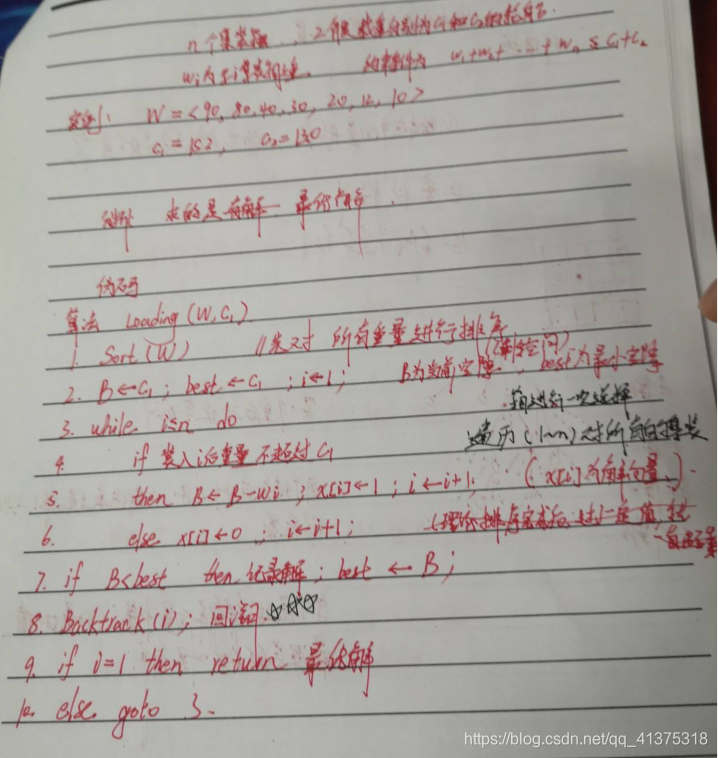 n个集装箱 2 载重分别为C₁和C₂的轮船
wᵢ为第i集装箱重量 约束条件为 w₁+w₂+……+wₙ≤C₁+C₂
实例: W=<90,80,40,30,20,12,10>
C₁=152, C₂=130
求的是 解 最优解
伪码
算法 Loading(W,C₁)
1. Sort(W) //先对所有重量进行排序
2. B←C₁; best←C₁; i←1; B为当前空隙 best为最小空隙
(剩余空间)
进行一次选择
3. while i≤n do 遍历(1~n)对所有的
4. if 装入i后重量不超过C₁
5. then B←B-wᵢ; x[i]←1; i←i+1; (x[i]为解向量)
6. else x[i]←0; i←i+1;
7. if B<best then 记录解; best←B;
8. Backtrack(i); 回溯 ☆☆☆
9. if i=1 then return 最优解
10. else goto 3.
https://blog.csdn.net/qq_41375318